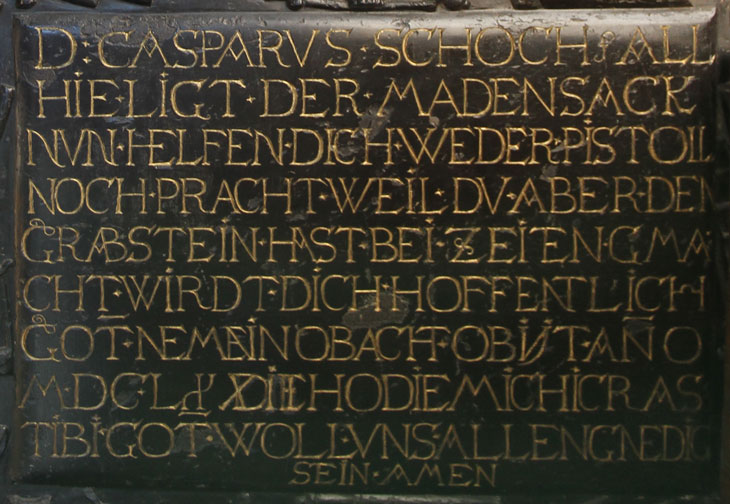 D · CASPARVS · SCHOCH · ALL
HIE · LIGT · DER · MADENSACK
NVN · HELFEN · DICH · WEDER PISTOLL
NOCH · PRACHT · WEIL · DV · ABER · DEN
GRABSTEIN · HAST · BEI · ZEITEN · GMA
CHT · WIRDT DICH · HOFFENTLICH
GOT · NEMEN IN OBACH · OBIIT · AÑO
M · DCL HODIE MICHI CRAS
TIBI · GOT · WOLL · VNS ALLEN GNEDIG
SEIN · AMEN